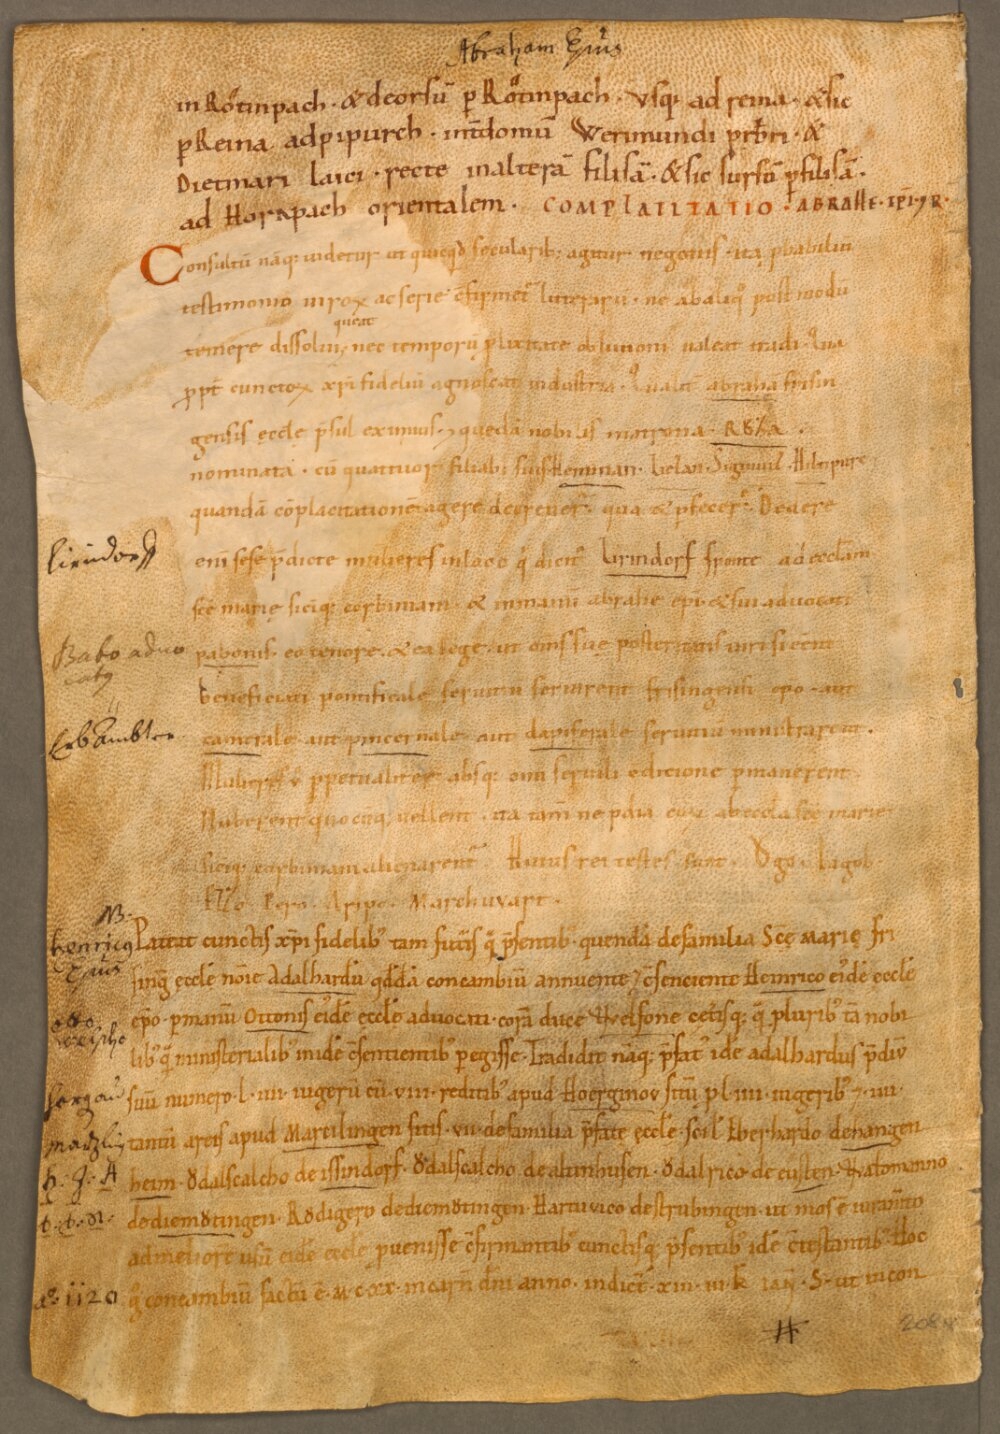 Abraham Epûs
in Rötinpach · & deorsū p Rötinpach · vsq; ad reina · & sic
p Reina ad pipurch · int domū Werimundi prbri · &
Dietmari laici · recte in alterā filisā · & sic sursū p filisā ·
ad Horapach orientalem · COMPLACITATIO · ABRAHE · EPI · 7 R ·
Consultū nāq; uidetur ut quicqd secularib; agitur negotiis · ita pbabiliū
testimonio uiroꝝ ac serie cfirmet litterarū · ne ab aliq post modū
queat
temere dissolui, nec temporū plixitate obliuioni ualeat tradi · Qua
ppt cunctoꝝ xpi fideliū agnoscat industria · Qualit abraha frisin
gensis eccle psul eximius · 7 quedā nobilis matrona · ROZA ·
nominata · cū quattuor filiab; suis Hemman · Sigunil · Hiltipurc
quandā cōplacitationē agere decreuer · qua & pfecer · Dedere
Lirndorff
eni sese pdicte mulieres in loco q dicit Lirindorf sponte ad ecclam
sce marie sciq; corbiniani · & in manū abrahe epi & sui aduocati
Babo aduo
caty
pabonis · eo tenore · & ea lege · ut oms sue posteritatis uiri si cent
beneficiati pontificale seruitiū seruirent frisingensi epo · aut
Erb Ambter
camerale aut pincernale aut dapiferale seruitiū ministrarent ·
Mulieres u ppetualiter absq; omi seruili edicione pmanerent
Nuberent quocūq; uellent · ita tam ne pdia eoꝝ ab eccla sce marie
sciq; corbiniani alienarent Huius rei testes sunt · Ogo · Iagob
Pero · Aripo · Marchuuart ·
NB.
Henricy
Epûs
Pateat cunctis xpi fidelib tam futis q psentib quendā de familia Sce Marie fri
sing eccle noie Adalhardū qddā concambiū annuente 7 csenciente Heinrico eide eccle
epo · p manū Ottonis eide eccle aduocati · corā duce Welfone cetisq; q plurib tā nobi
lib q ministerialib inide csentientib pegisse · Tradidit nāq; pfat ide adalhardus pdiū
suū numero · l · iiii · iugerū cū · viii · reditib apud Hoerginov sitū p l · iiii · iugerib 7 · iiii ·
tantū areis apud Marcilingen sitis · vii · de familia pfate eccle · scil Eberhardo de hangen
heim · Odalscalcho de issindorf · Odalscalcho de altinhusen · Odalrico de custen · Ratomanno
de diemotingen · Rodigero de diemotingen · Hartuuico de strubingen · ut mos e iuramto
ad meliore usū eide eccle puenisse cfirmantib cunctisq; psentib ide ctestantib · Hoc
a° 1120
q concambiū factū e · M · C · XX · incarn dni anno · indict · XIII · III · K IAN · S · ut in con